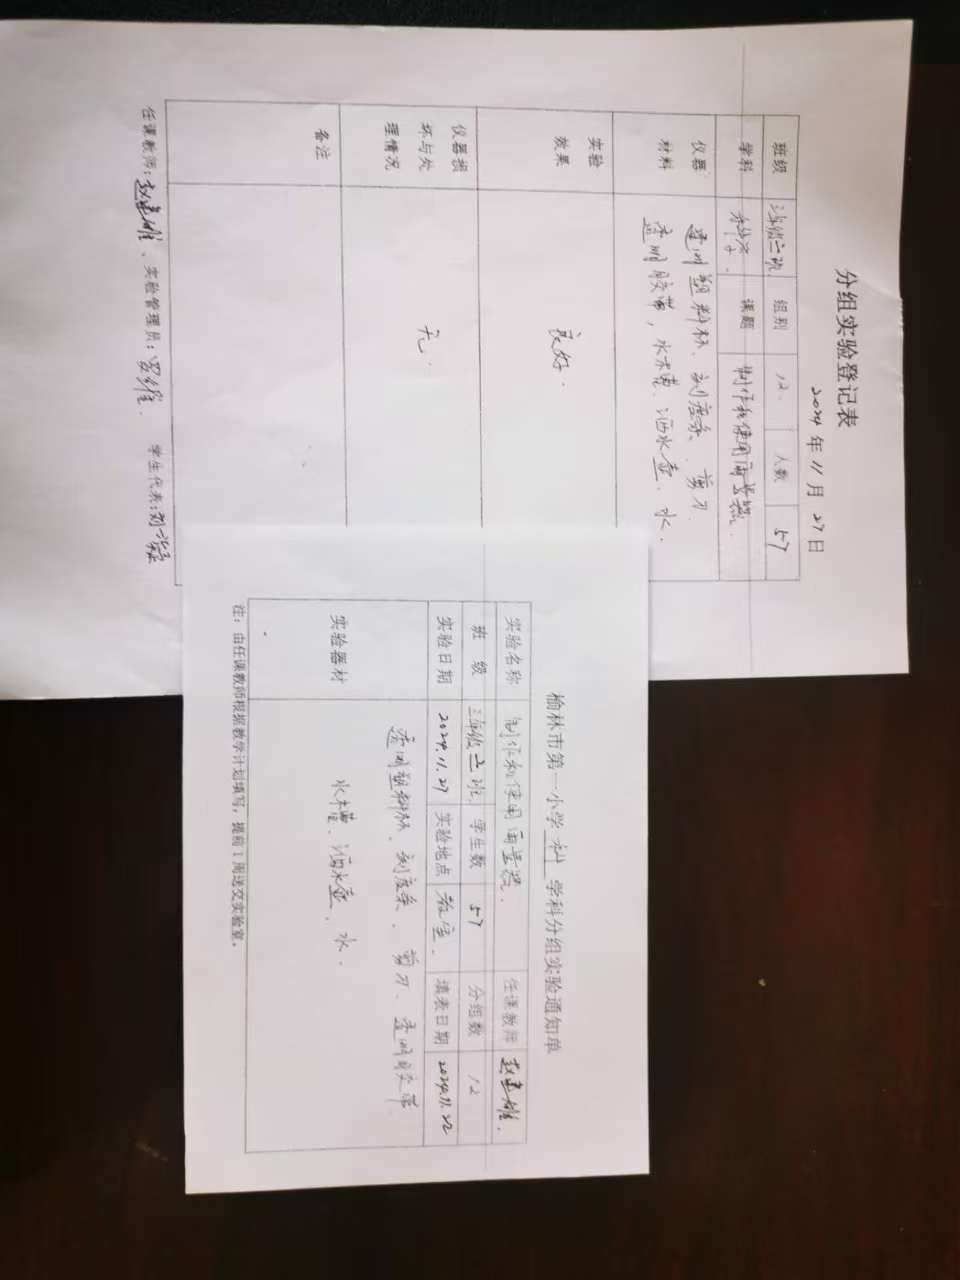 分组实验登记表
2024年11月27日
班级 三年级六班 组别 12. 人数 57
学科 科学 课题 制作和使用雨量器.
仪器材料 透明塑料杯、刻度条、剪刀.
透明胶带,水槽、洒水壶.水.
实验效果 良好.
仪器损坏与处理情况 无.
备注
任课教师: 实验管理员: 学生代表:
榆林市第一小学 科 学科分组实验通知单
实验名称 制作和使用雨量器. 任课教师
班 级 三年级六班. 学生数 57 分组数 12
实验日期 2024.11.27 实验地点 教室. 填表日期 2024.11.22
实验器材 透明塑料杯、刻度条、剪刀、透明胶带
水槽、洒水壶、水.
注:由任课教师根据教学计划填写,提前1周送交实验室。